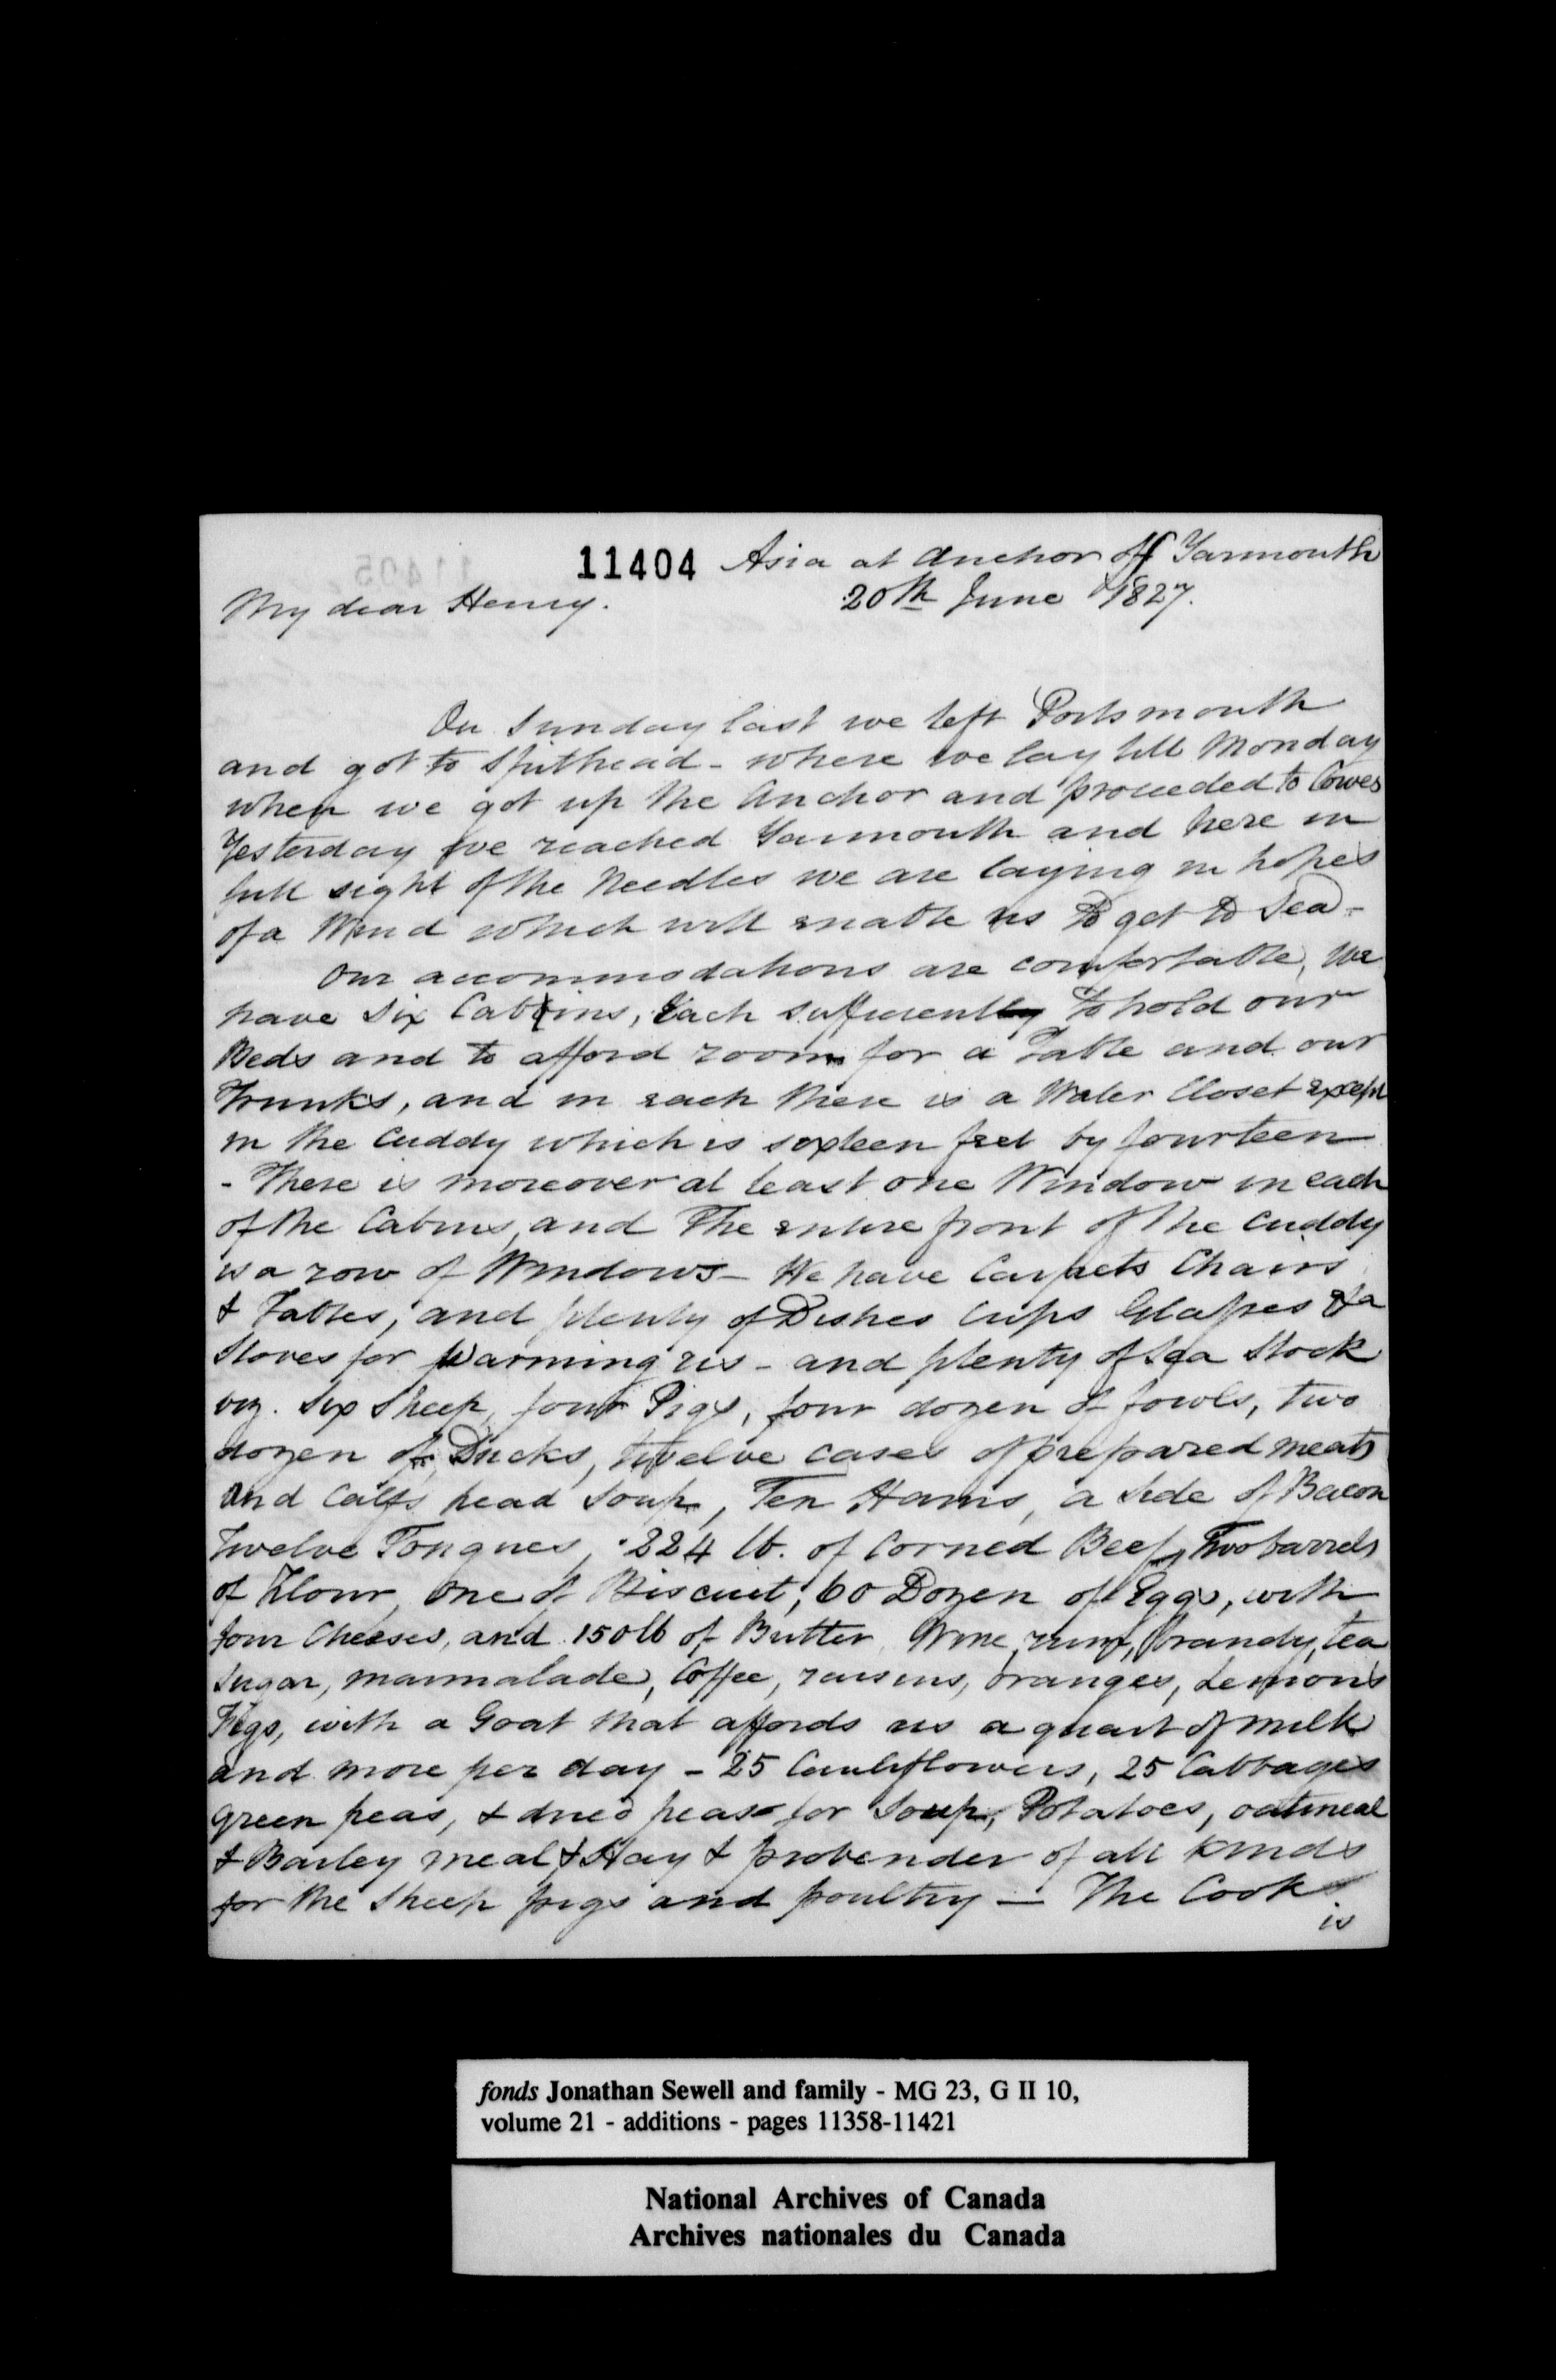 11404 Asia at Anchor off Yarmouth
My dear Henry. 20th June 1827.
On Sunday last we left Portsmouth
and got to Spithead - where we lay till Monday
when we got up the Anchor and proceeded to Cowes
Yesterday we reached Yarmouth and here in
full sight of the Needles we are laying in hopes
of a Wind which will enable us to get to Sea -
Our accommodations are comfortable, We
have Six Cabbins, Each sufficiently to hold our
Beds and to afford room for a Table and our
Trunks, and in each there is a Water Closet except
in the Cuddy which is sixteen feet by fourteen
- There is moreover at least one Window in each
of the Cabins, and The entire front of the Cuddy
is a row of Windows - We have Carpets Chairs
& Tables, and plenty of Dishes Cups Glasses &a
Stoves for Warming us - and plenty of Sea Stock
viz. Six Sheep, four Pigs, four dozen of fowls, two
dozen of Ducks, twelve cases of prepared meats
and Calfs head Soup, Ten Hams, a side of Bacon
Twelve Tongues, 224 lb. of Corned Beef, Two barrels
of Flour, one of Biscuit, 60 Dozen of Eggs, with
four Cheeses, and 150 lb of Butter, Wine, rum, brandy, tea
Sugar, marmalade, Coffee, raisins, oranges, Lemons
Figs, with a Goat that affords us a quart of milk
and more per day - 25 Cauliflowers, 25 Cabbages
green peas, & dried peas for Soup, Potatoes, oatmeal
& Barley meal & Hay & provender of all kinds
for the Sheep pigs and poultry — The Cook
is
fonds Jonathan Sewell and family - MG 23, G II 10,
volume 21 - additions - pages 11358-11421
National Archives of Canada
Archives nationales du Canada